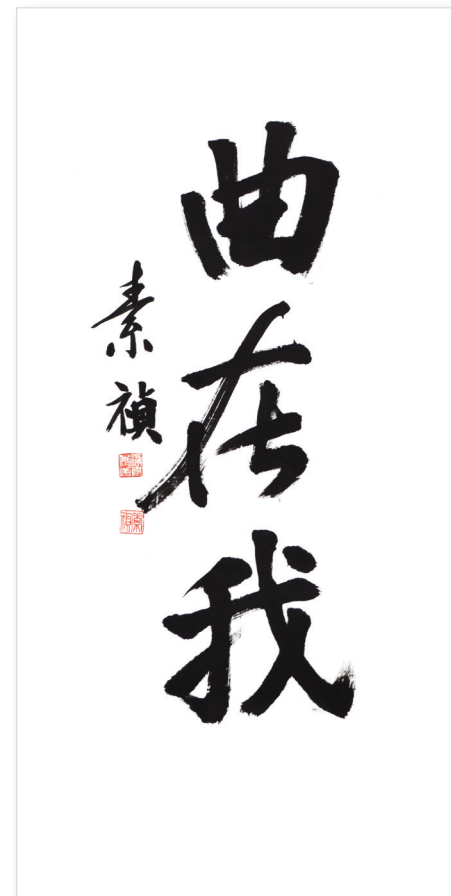 曲在我
素禎